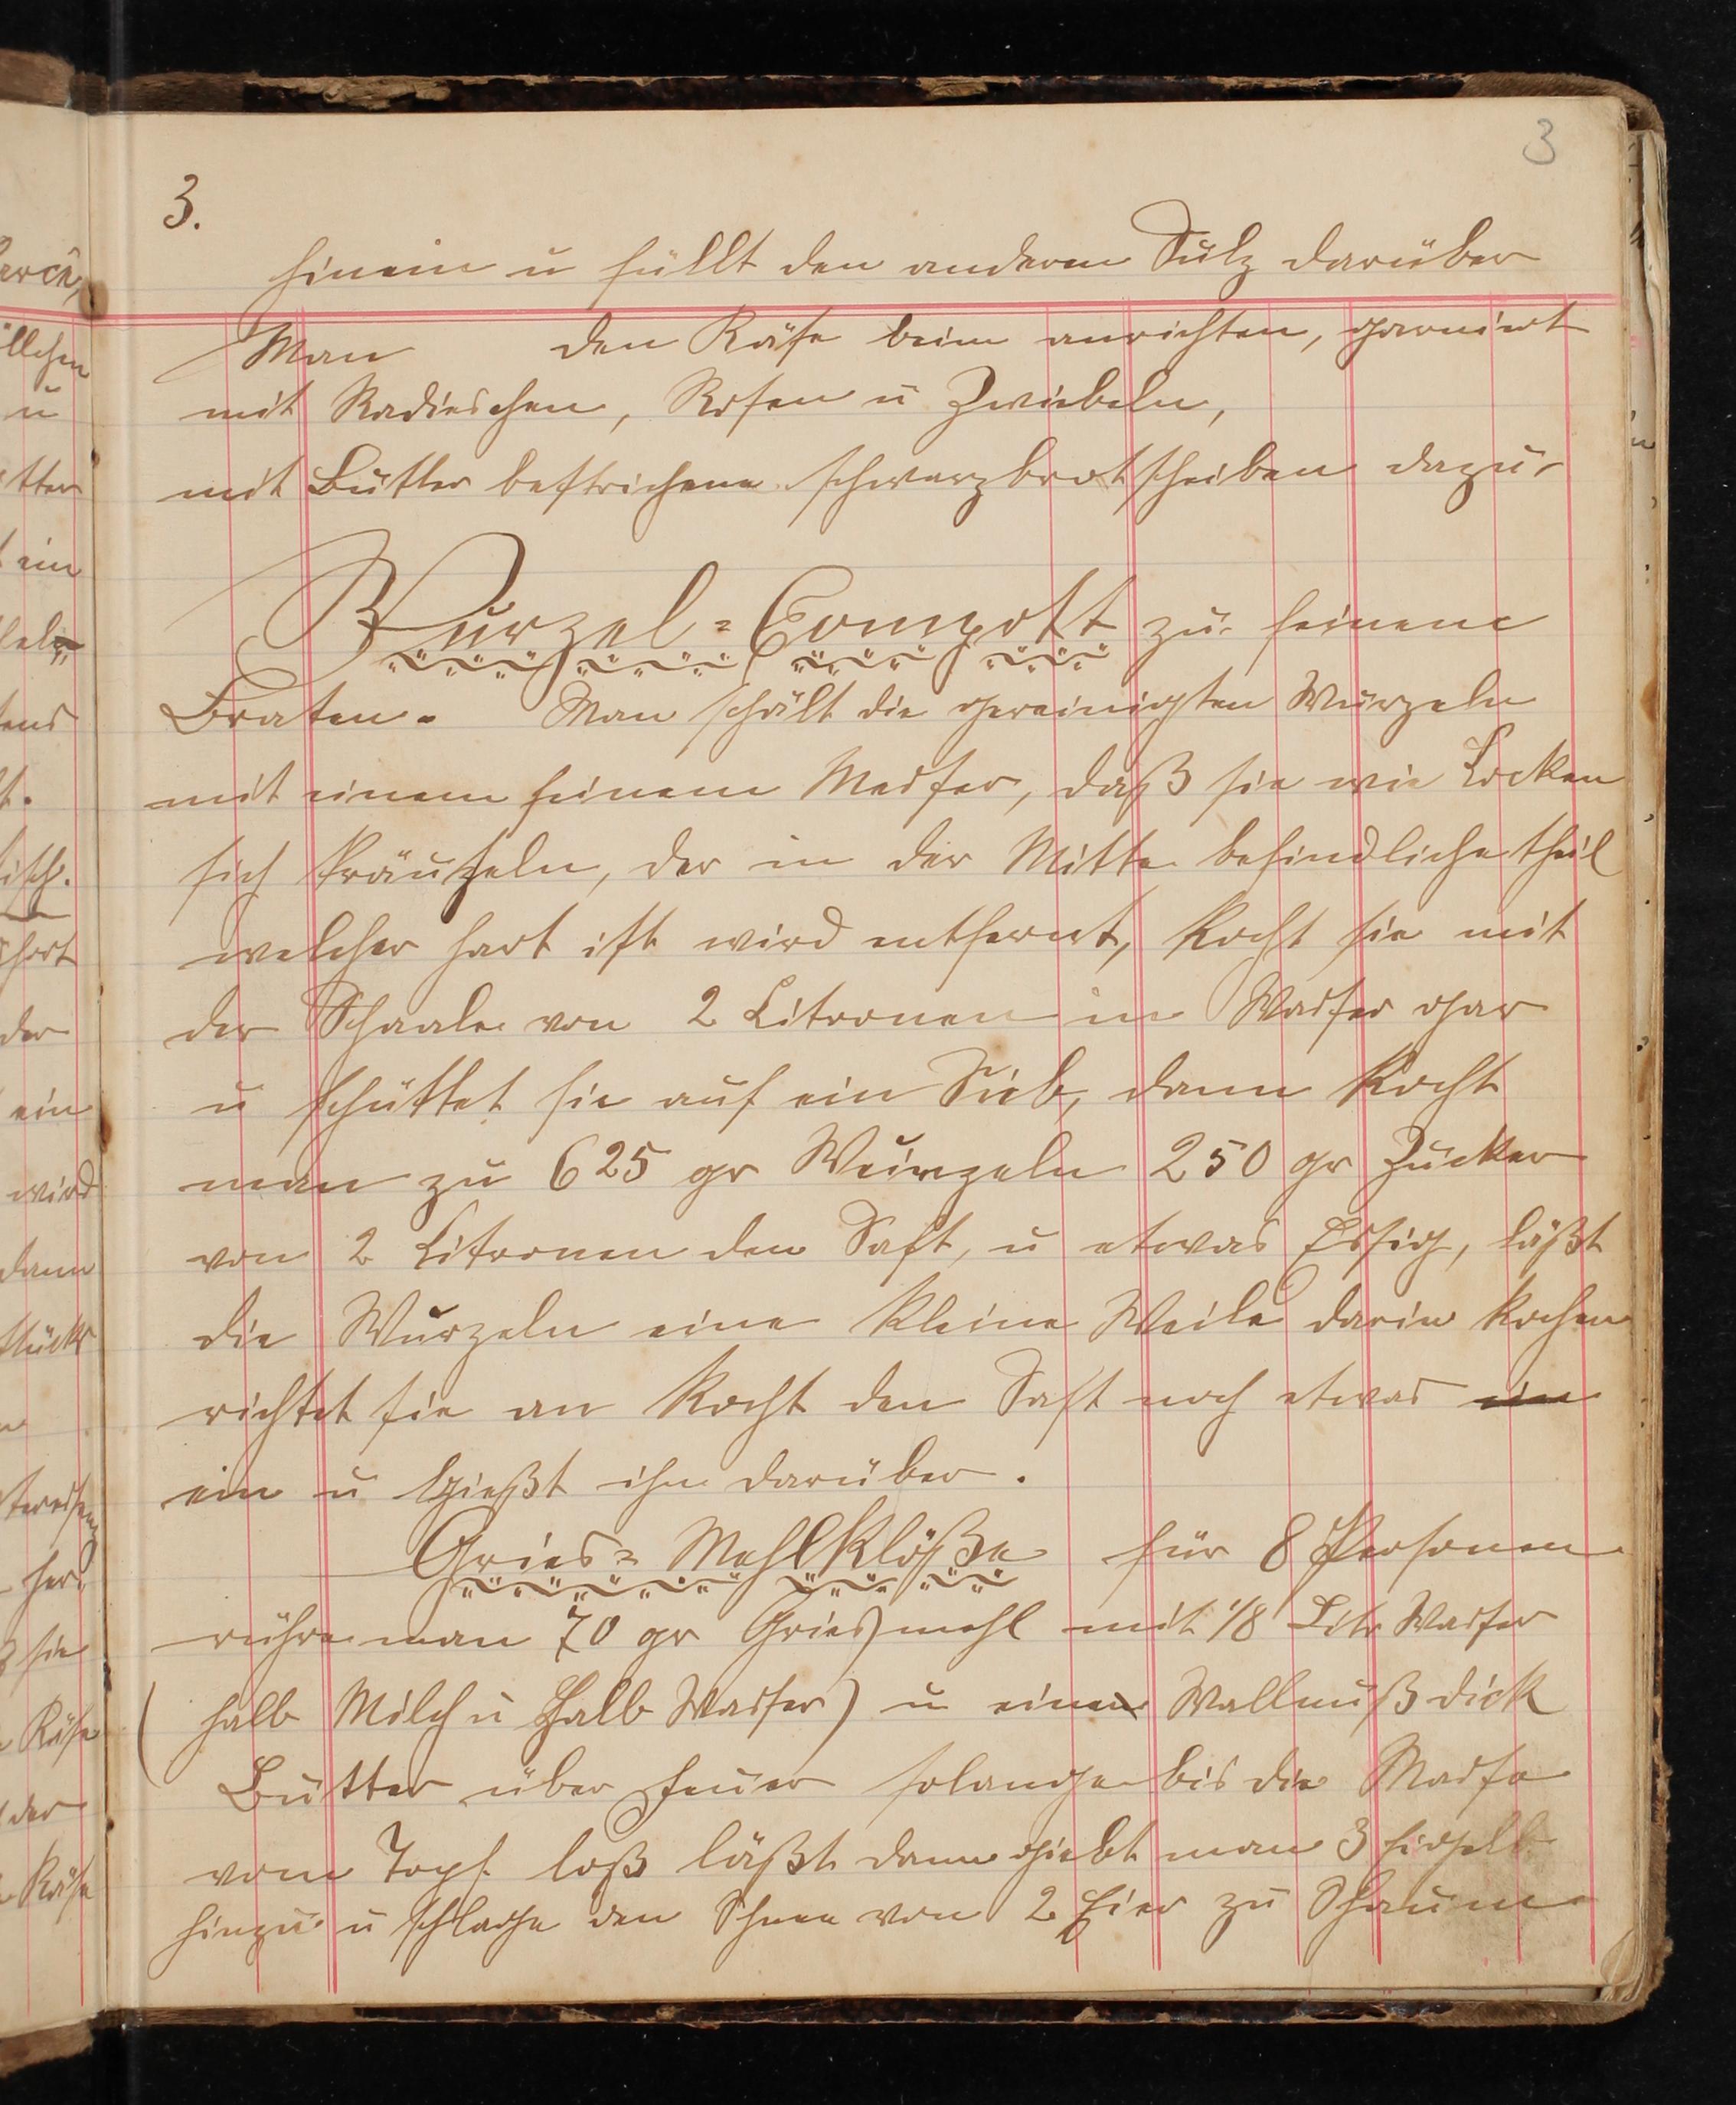 3
3.
hinein u füllt den anderen Sulz darüber
Man den Käse beim anrichten, garnirt
mit Radieschen, Rosen u Zwiebeln,
mit Butter bestrichene schwarzbrotscheiben dazu.
Wurzel=Compott zu feinem
Braten. Man schält die gereinigten Wurzeln
mit einem feinem Messer, daß sie wie Locken
sich kräuseln, der in der Mitte befindliche theil
welcher hart ist wird entfernt, Kocht sie mit
der Schaale von 2 Citronen in Wasser gar
u schüttet sie auf ein Sieb, dann Kocht
man zu 625 gr Wurzeln 250 gr Zucker
von 2 Citronen den Saft, u etwas Essig, läßt
die Wurzeln eine Kleine Weile darin Kochen
richtet sie an Kocht den Saft noch etwas ein
ein u Gießt ihn darüber.
Gries=Mehlklöße für 8 Personen
rühre man 70 gr Griesmehl mit 1/8 Litr Wasser
(halb Milch u Halb Wasser) u einen Wallnuß dick
Butter über Feuer solange bis die Masse
vom Topf loß läßt dann giebt man 3 Eigelb
hinzu u schlage den Schnee von 2 Eier zu Schaum